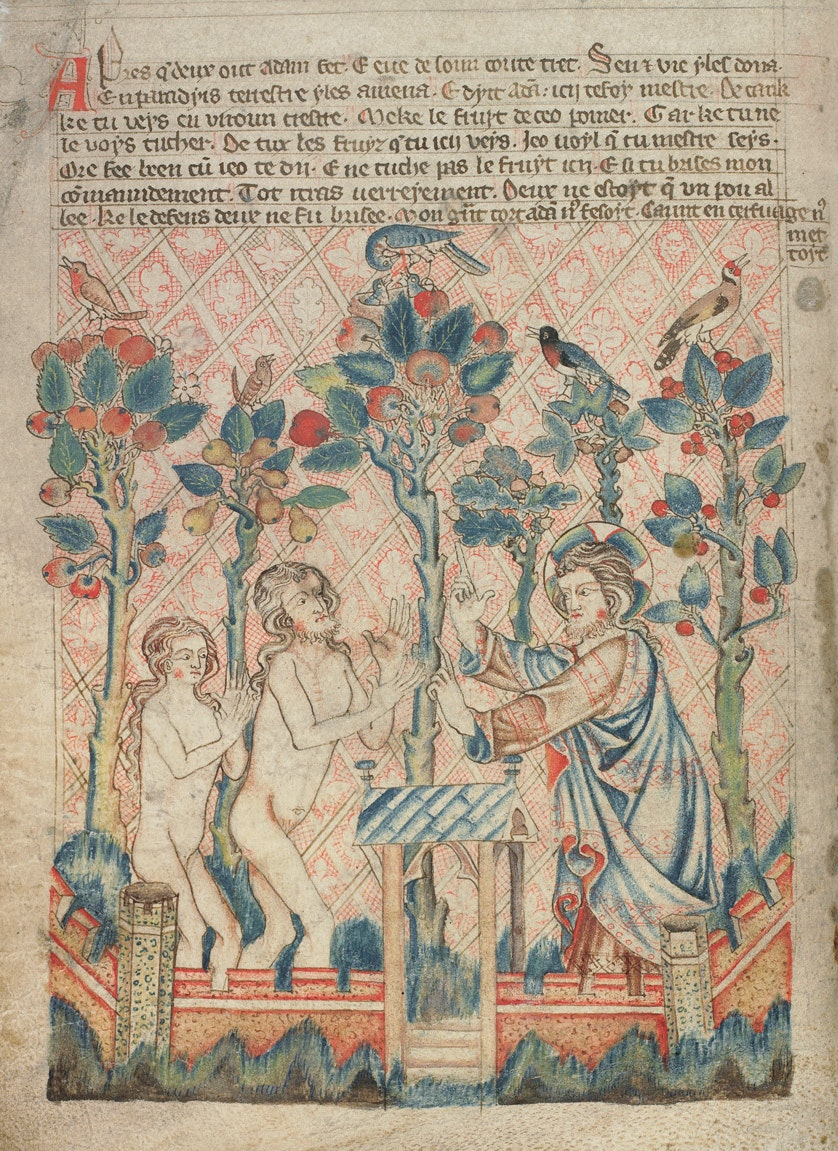 Apres q̄ deux out adam fet. E eue de soun coute tret. Seu ⁊ vie yles dona.
En paradyis terrestre yles amena. E dyit adā. icy te soy mestre. De tank
ke tu veys en viroun trestre. Meke le fruyt de ceo pomer. Gar ke tu ne
le voys tucher. De tux les fruyz q̄ tu icy veys. Jeo uoyl q̄ tu mestre seys.
Ore fee been cū ieo te di. E ne tuche pas le fruyt icy. E si tu brises mon
cōmaundement. Tot morras uerreyement. Deux ne estoyt q̄ un pou al
lee. ke le defens deux ne fu brisee. Mon gūt tort adā n' fesoyt. Caunt en ceruage n'
met
toyt